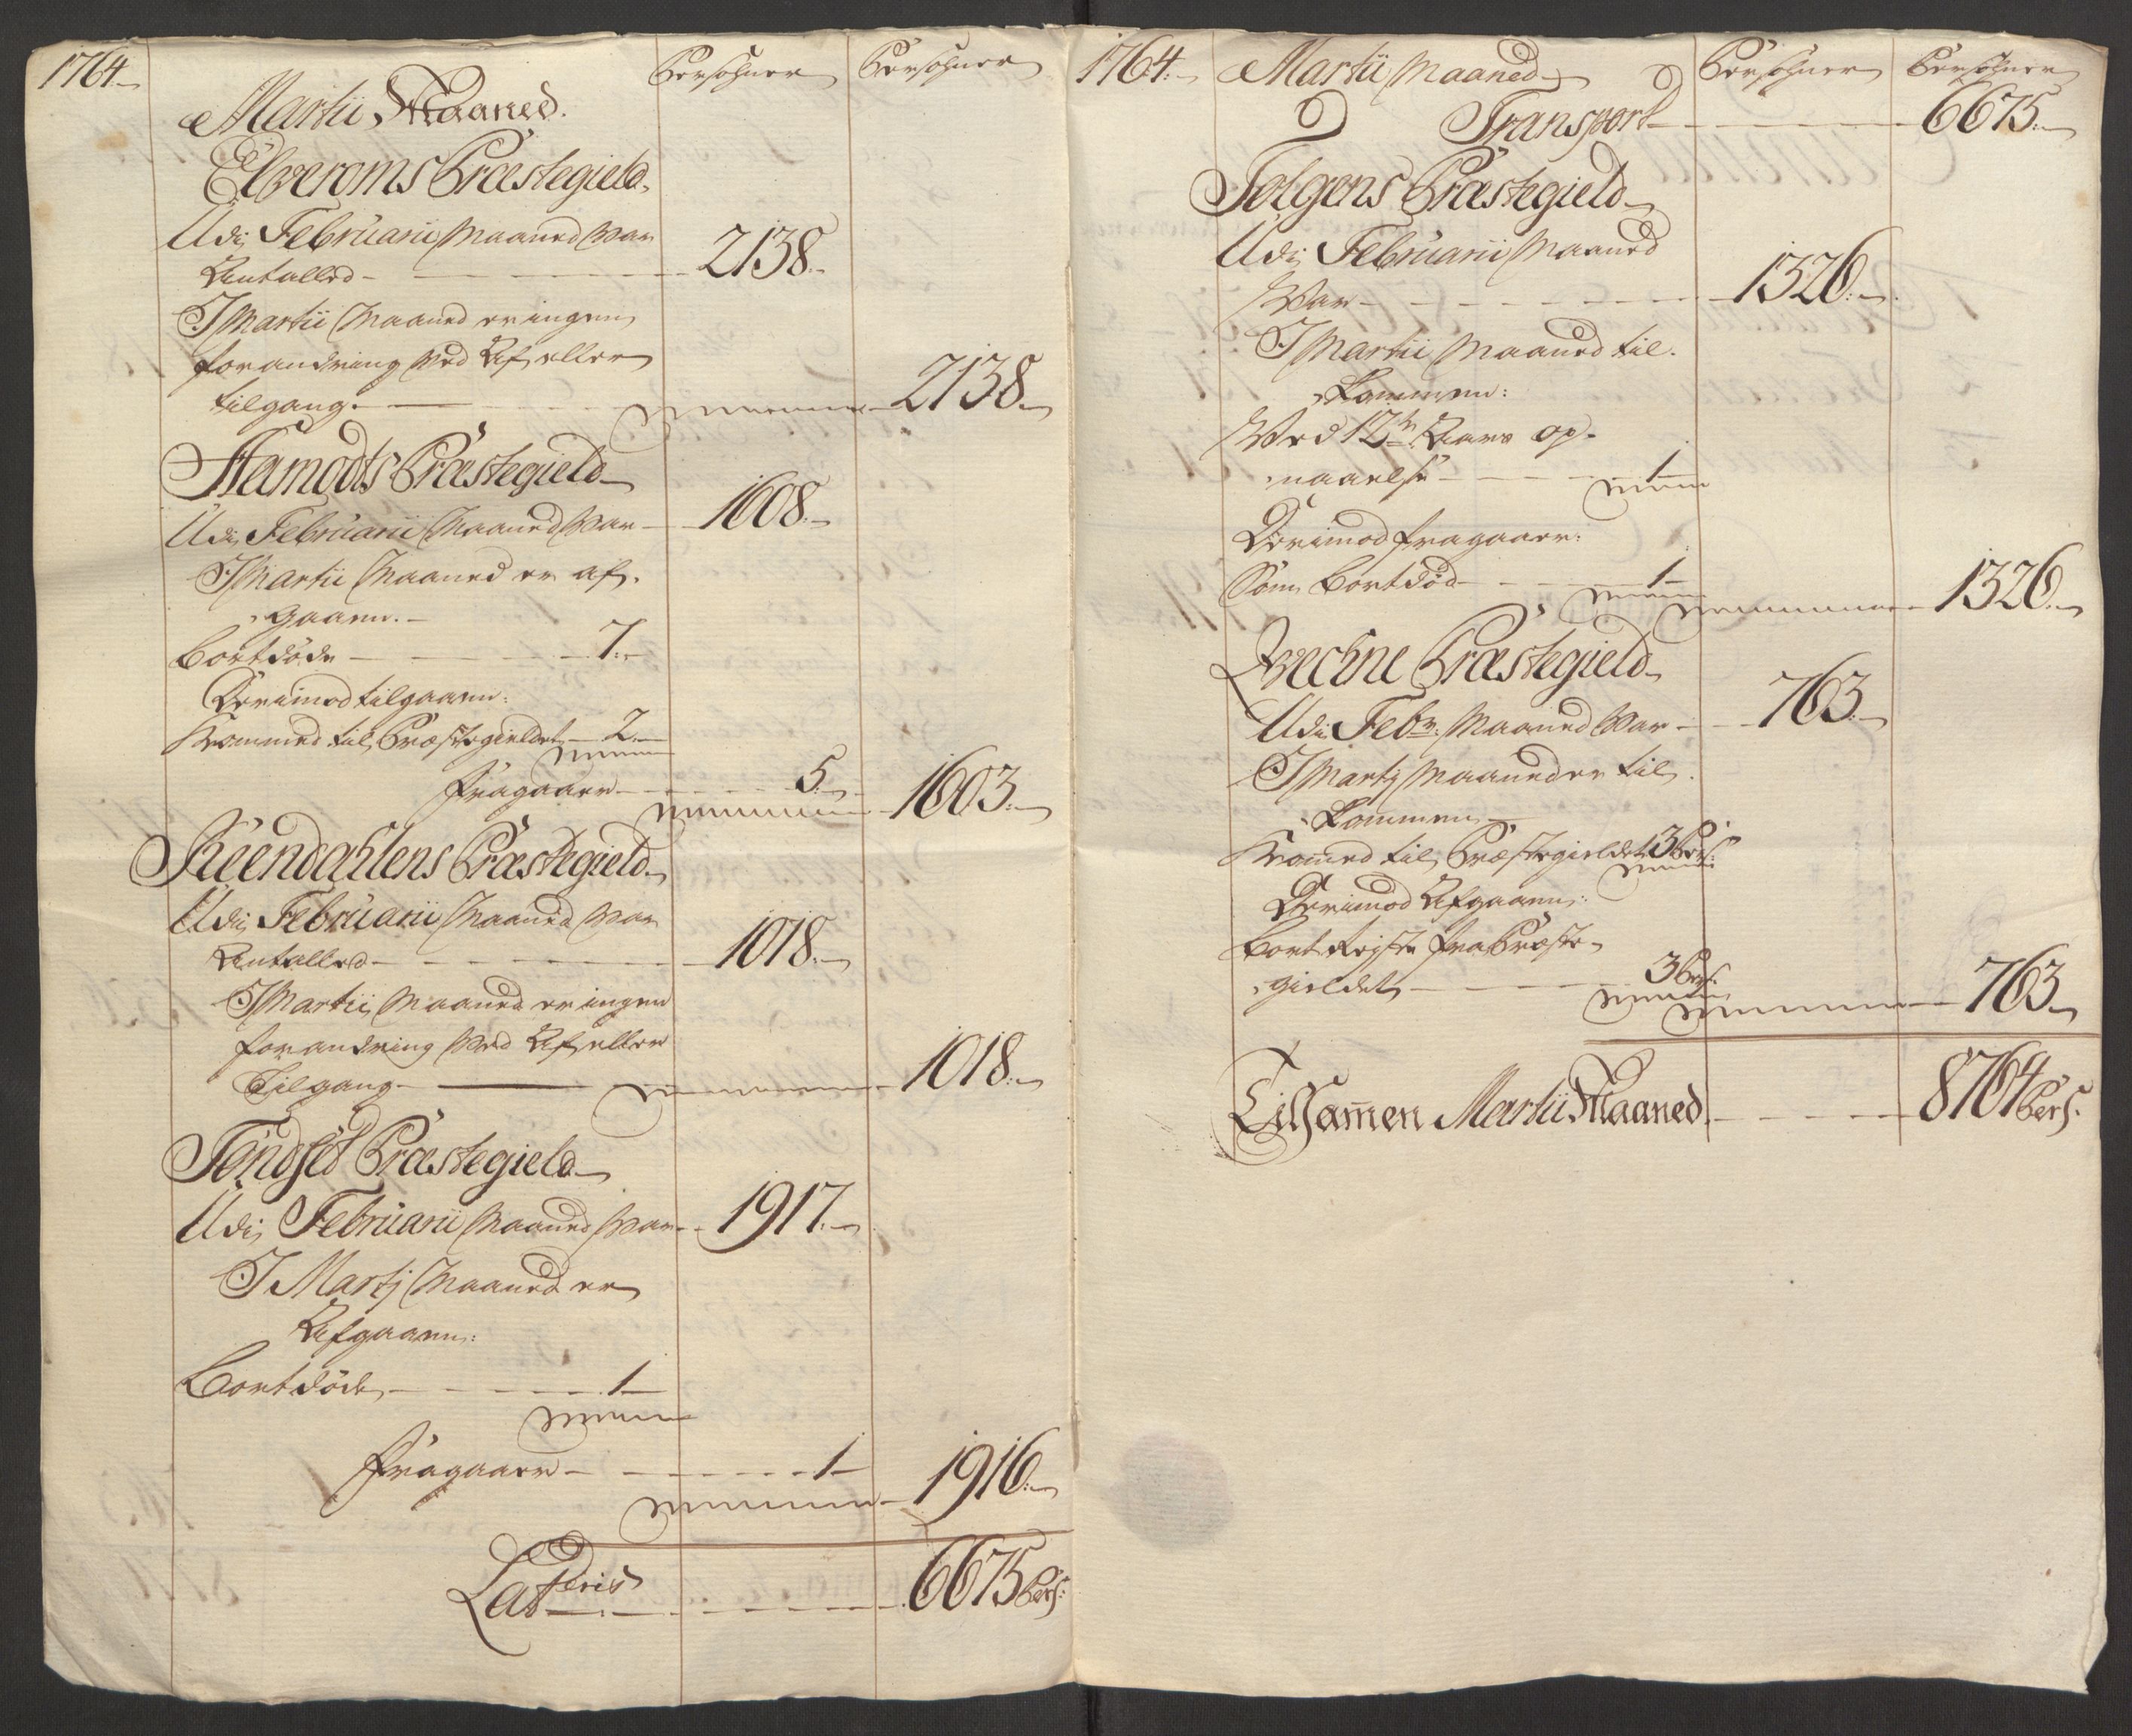 1764.
Persohner
Persohner
Martii Maaned.
Elveroms Præstegield.
Udi Februarii Maaned var
Antalled 2138.
I Martii Maaned er ingen
forandring ved Af eller
tilgang. 2138.
Aamodts Præstegield
Udi Februarii Maaned var 1608.
I Martii Maaned er af-
gaaen.
Bortdøde 7.
Derimod tilgaaen:
Kommed til Præstegieldet 2.
fragaaer 5. 1603.
Reendahlens Præstegield
Udi Februarii Maaned var
Antalled 1018.
I Martii Maaned er ingen
forandring ved Af eller
Tilgang. 1018.
Töndset Præstegield
Udi Februarii Maaned var 1917.
I Martj Maaned er
Afgaaen:
Bortdöde 1
fragaaer 1 1916.
Lateris 6675 Pers:
1764.
Martii Maaned
Persohner
Persohner
Transport 6675.
Tolgens Præstegield
Udi Februarii Maaned
Var 1326.
I Martii Maaned til-
kommen:
Ved 12te Aars op-
naaelse 1
Derimod fragaaer:
Som bortdöd 1 1326.
Qvechne Præstegield
Udi Febr: Maaned var 763.
I Martj Maaned er til-
kommen
Kommed til Præstegieldet 3 Pers:
Derimod Afgaaen:
bort Rejste fra Præste-
gieldet 3 Pers: 763
Tilsamen Martii Maaned 8764 Pers: